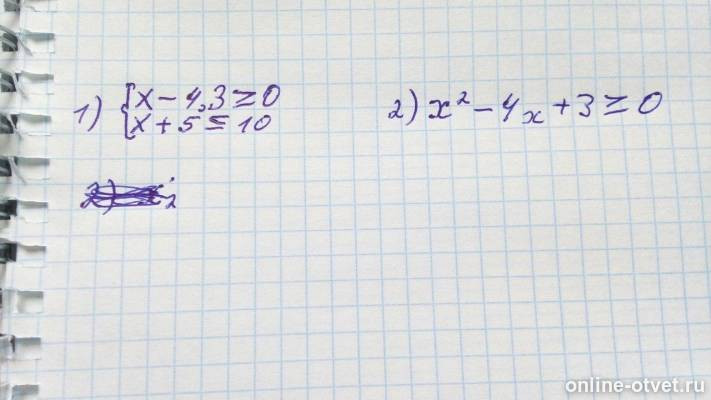 1) { x - 4,3 ≥ 0
x + 5 ≤ 10
2) x² - 4x + 3 ≥ 0
online-otvet.ru